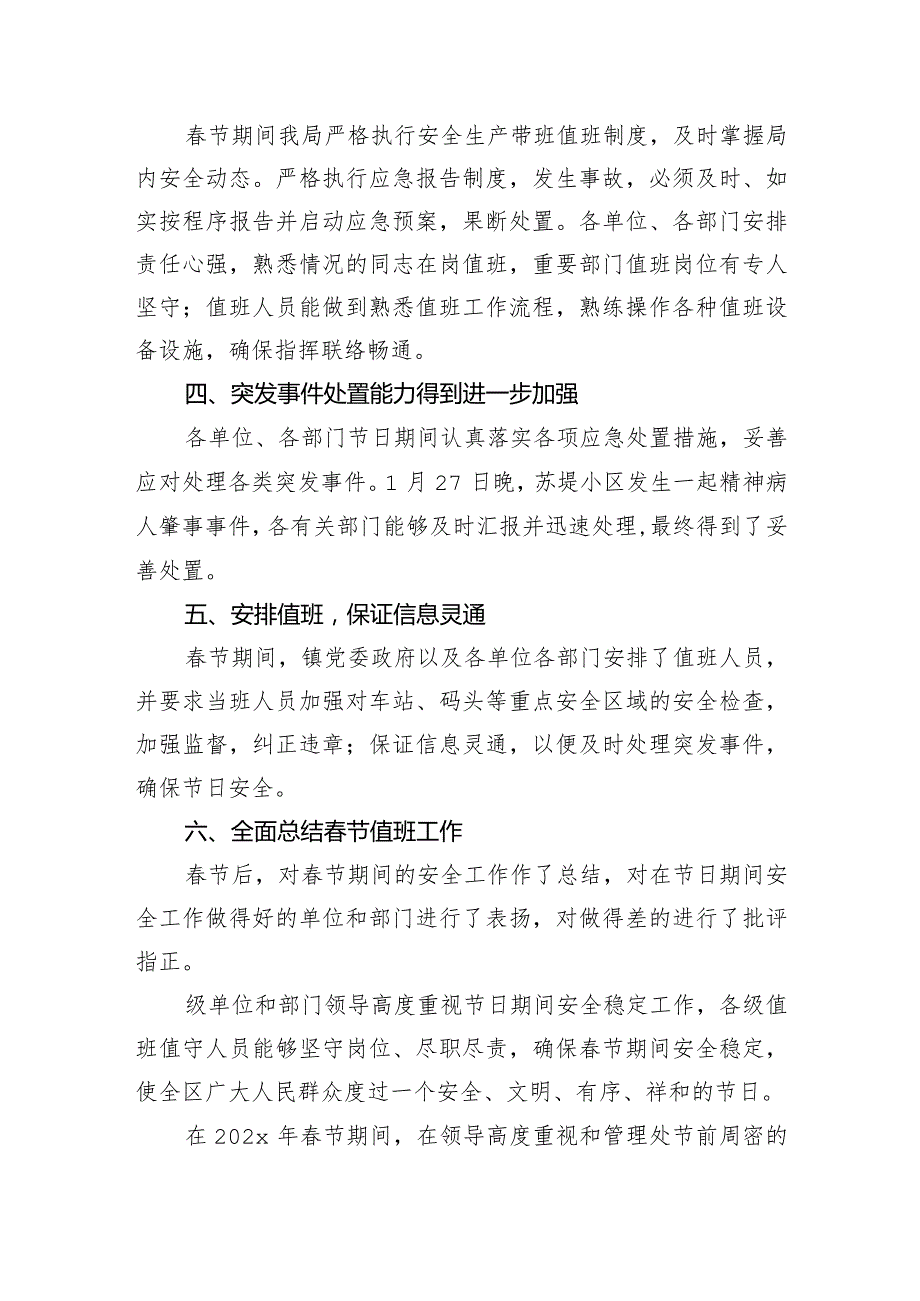 春节期间我局严格执行安全生产带班值班制度，及时掌握局
内安全动态。严格执行应急报告制度，发生事故，必须及时、如
实按程序报告并启动应急预案，果断处置。各单位、各部门安排
责任心强，熟悉情况的同志在岗值班，重要部门值班岗位有专人
坚守；值班人员能做到熟悉值班工作流程，熟练操作各种值班设
备设施，确保指挥联络畅通。
四、突发事件处置能力得到进一步加强
各单位、各部门节日期间认真落实各项应急处置措施，妥善
应对处理各类突发事件。1 月 27 日晚，苏堤小区发生一起精神病
人肇事事件，各有关部门能够及时汇报并迅速处理,最终得到了妥
善处置。
五、安排值班，保证信息灵通
春节期间，镇党委政府以及各单位各部门安排了值班人员，
并要求当班人员加强对车站、码头等重点安全区域的安全检查，
加强监督，纠正违章；保证信息灵通，以便及时处理突发事件，
确保节日安全。
六、全面总结春节值班工作
春节后，对春节期间的安全工作作了总结，对在节日期间安
全工作做得好的单位和部门进行了表扬，对做得差的进行了批评
指正。
级单位和部门领导高度重视节日期间安全稳定工作，各级值
班值守人员能够坚守岗位、尽职尽责，确保春节期间安全稳定，
使全区广大人民群众度过一个安全、文明、有序、祥和的节日。
在 202x 年春节期间，在领导高度重视和管理处节前周密的